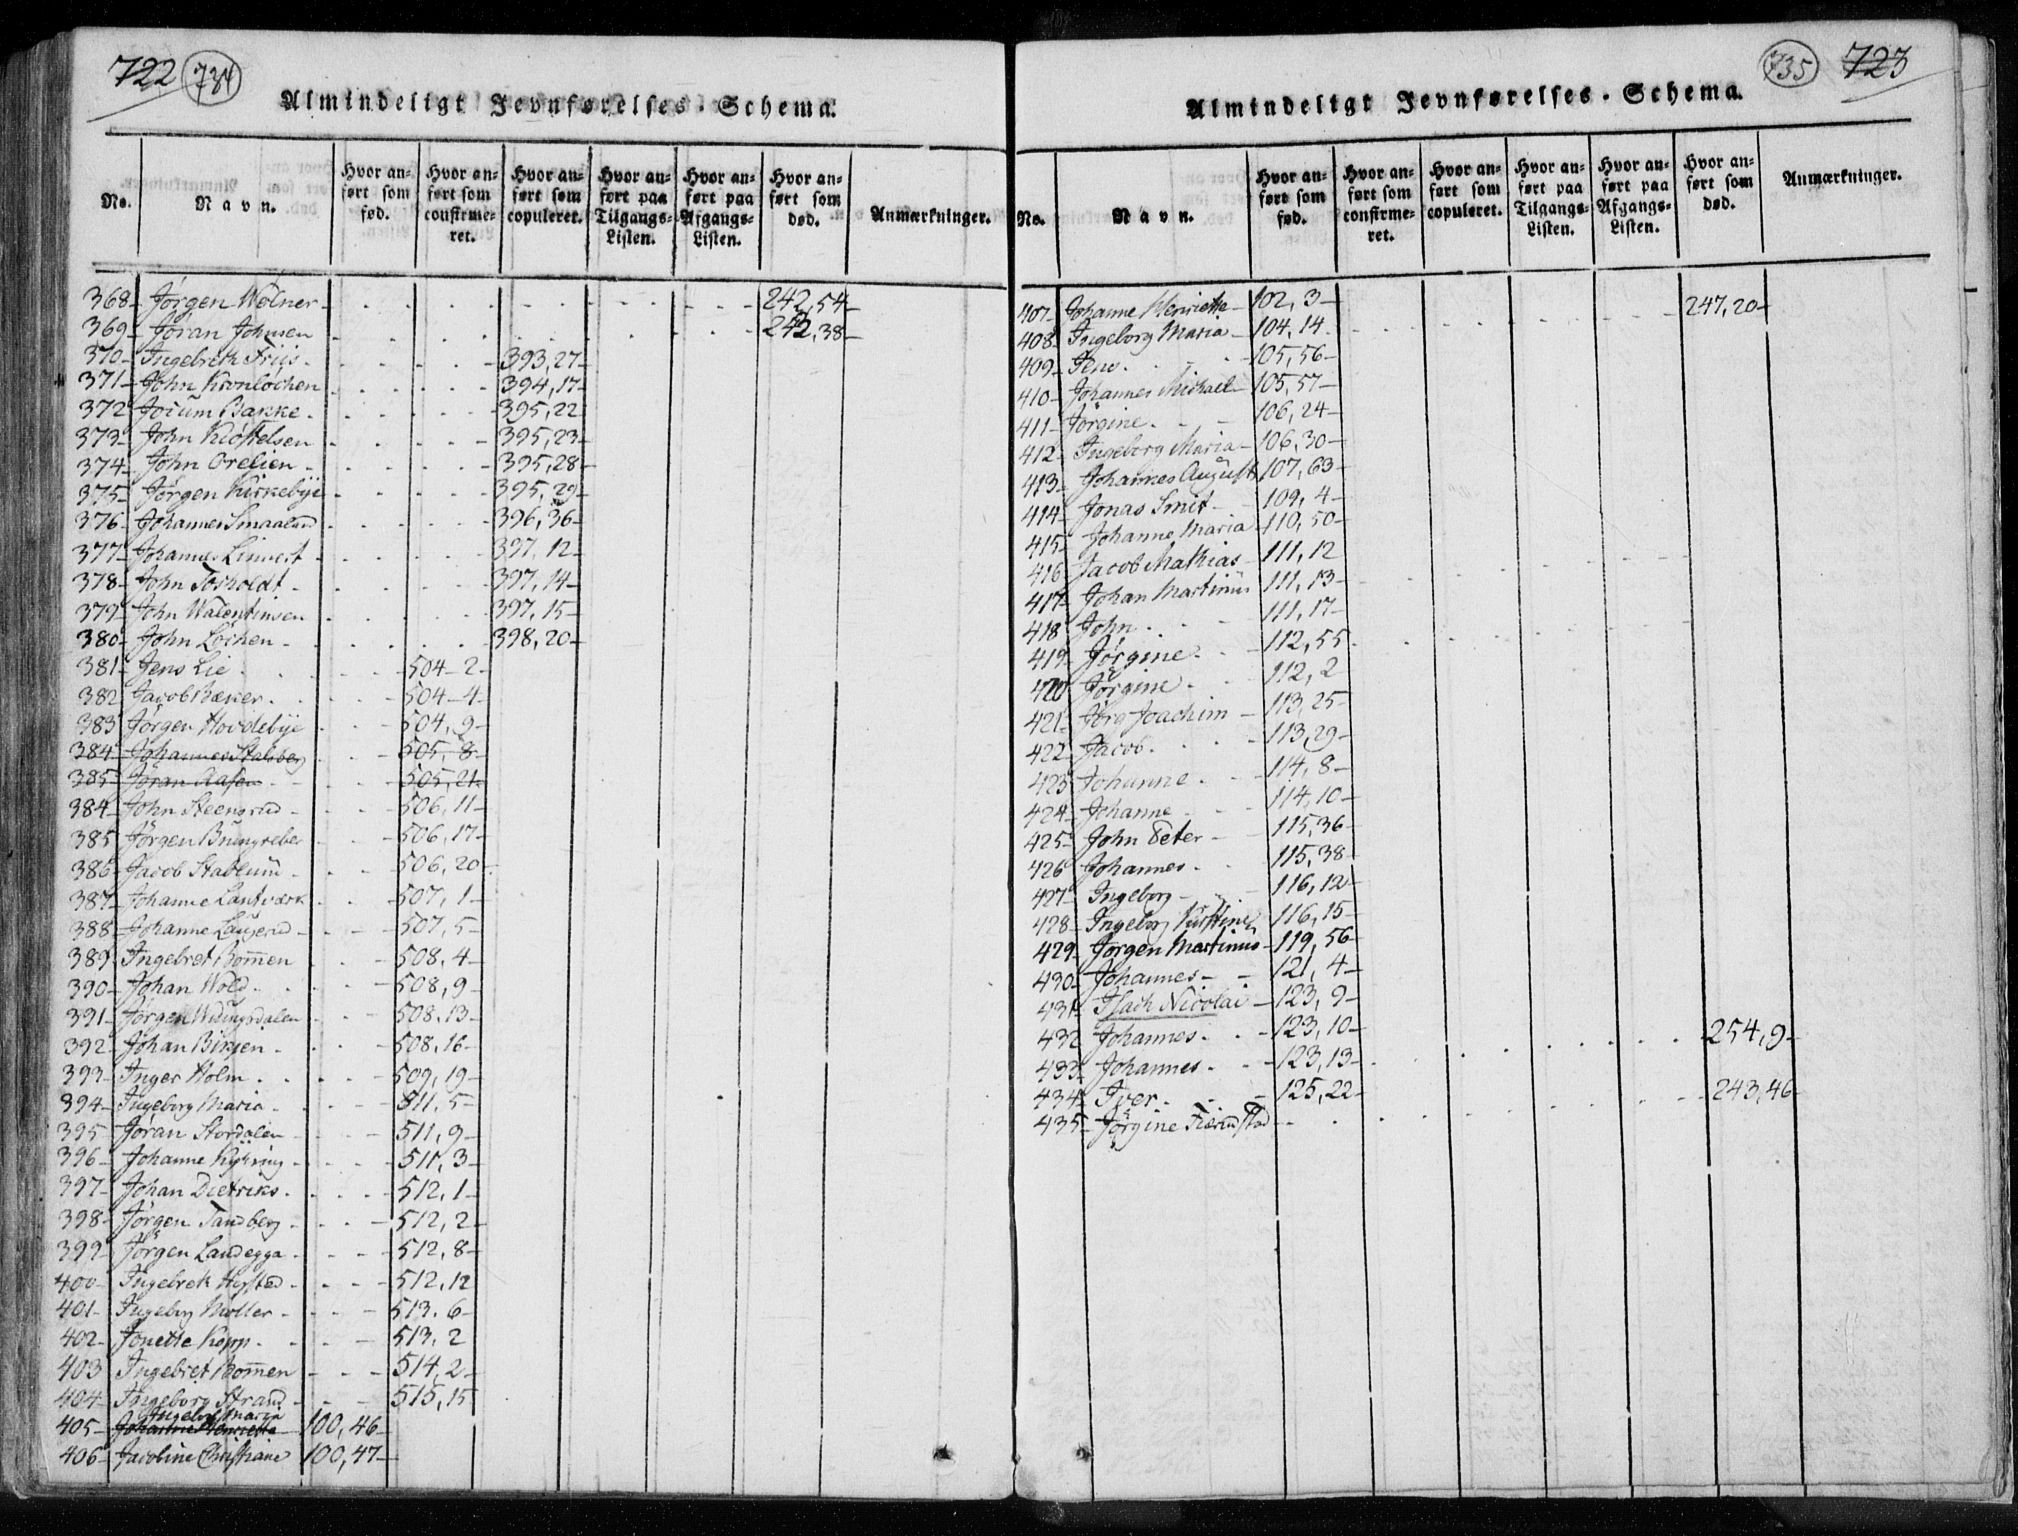 722 734
Almindeligt Jevnførelses-Schema.
No.
Navn.
Hvor anført som fød.
Hvor anført som confirmeret.
Hvor anført som copuleret.
Hvor anført paa Tilgangs-Listen.
Hvor anført paa Afgangs-Listen.
Hvor anført som død.
Anmærkninger.
368 Jørgen Wølner 242,54
369 Jøran Johnsen 242,38
370 Ingebreth Friis 393,27
371 John Kronløchen 394,17
372 Jocum Bakke 395,22
373 John Kiøstelsen 395,23
374 John Oresien 395,28
375 Jørgen Kirkebÿe 395,29
376 Johannes Smaaland 396,36
377 Johannes Linnest 397,12
378 John Torholdt 397,14
379 John Walentinsen 397,15
380 John Løchen 398,20
381 Jens Lie 504-2
382 Jacob Bæker 504-4
383 Jørgen Hovdebÿe 504,9
384 Johannes Stalsberg 505,8
385 Jøran Aasen 505,21
384 John Steensrud 506,11
385 Jørgen 506,17
386 Jacob Stablum 506,20
387 Johanne Lantværk 507,1
388 Johanne Laugerud 507,5
389 Ingebret Bom̄en 508,4
390 Johan Wold 508,9
391 Jørgen Wiungsdalen 508,13
392 Johan Birjen 508,16
393 Inger Holm 509,19
394 Ingeborg Maria 511,5
395 Jøran Stordalen 511,9
396 Johanne 511,3
397 Johan Dietriks 512,1
398 Jørgen Tandberg 512,2
399 Jørgen Landegga 512,8
400 Ingebrek Hysted 512,12
401 Ingeborg Møller 513,6
402 Jonette Kopp 513,2
403 Ingebret Bom̄en 514,2
404 Ingeborg Strand 515,15
Ingeborg Maria
405 Johanne Henriette 100,46
406 Jacobine Christiane 100,47
735 723
Almindeligt Jevnførelses-Schema.
No.
Navn.
Hvor anført som fød.
Hvor anført som confirmeret.
Hvor anført som copuleret.
Hvor anført paa Tilgangs-Listen.
Hvor anført paa Afgangs-Listen.
Hvor anført som død.
Anmærkninger.
407 Johanne Henriette 102,3 247,20
408 Ingeborg Maria 104,14
409 Jens 105,56
410 Johannes Michael 105,57
411 Jørgine 106,24
412 Ingeborg Maria 106,30
413 Johannes August 107,63
414 Jonas Smit 109,4
415 Johanne Maria 110,50
416 Jacob Mathias 111,12
417 Johan Martinus 111,13
418 John 111,17
419 Jørgine 112,55
420 Jørgine 112,2
421 Jørg Joachim 113,25
422 Jacob 113,29
423 Johanne 114,8
424 Johanne 114,10
425 John Peter 115,36
426 Johannes 115,38
427 Ingeborg 116,12
428 Ingeborg Kirstine 116,15
429 Jørgen Martinus 119,56
430 Johannes 121,4
431 Isach Nicolai 123,9
432 Johannes 123,10 254,9
433 Johannes 123,13
434 Iver 125,22 243,46
435 Jørgine Fierdstad